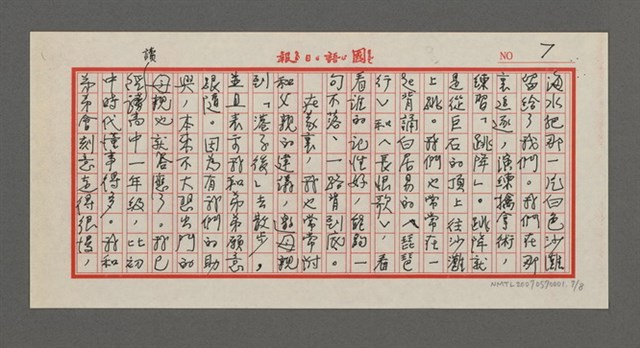 國語日報
NO 7
海水把那一片白色沙灘
留給了我們。我們在那
裏追逐,演練擒拿術,
練習「跳降」。跳降就
是從巨石的頂上往沙灘
上跳。我們也常常在一
起背誦白居易的〈琵琶
行〉和〈長恨歌〉,看
看誰的記性好,能夠一
句不落、一路背到底。
在家裏,我也常常附
和父親的建議,邀母親
到「港子後」去散步,
並且表示我和弟弟願意
跟隨。因為有我們的助
興,本來不大想出門的
母親也就答應了。我已
經讀高中一年級,比初
中時代懂事得多。我和
弟弟會刻意走得很慢,
NMTL20070570001.7/8